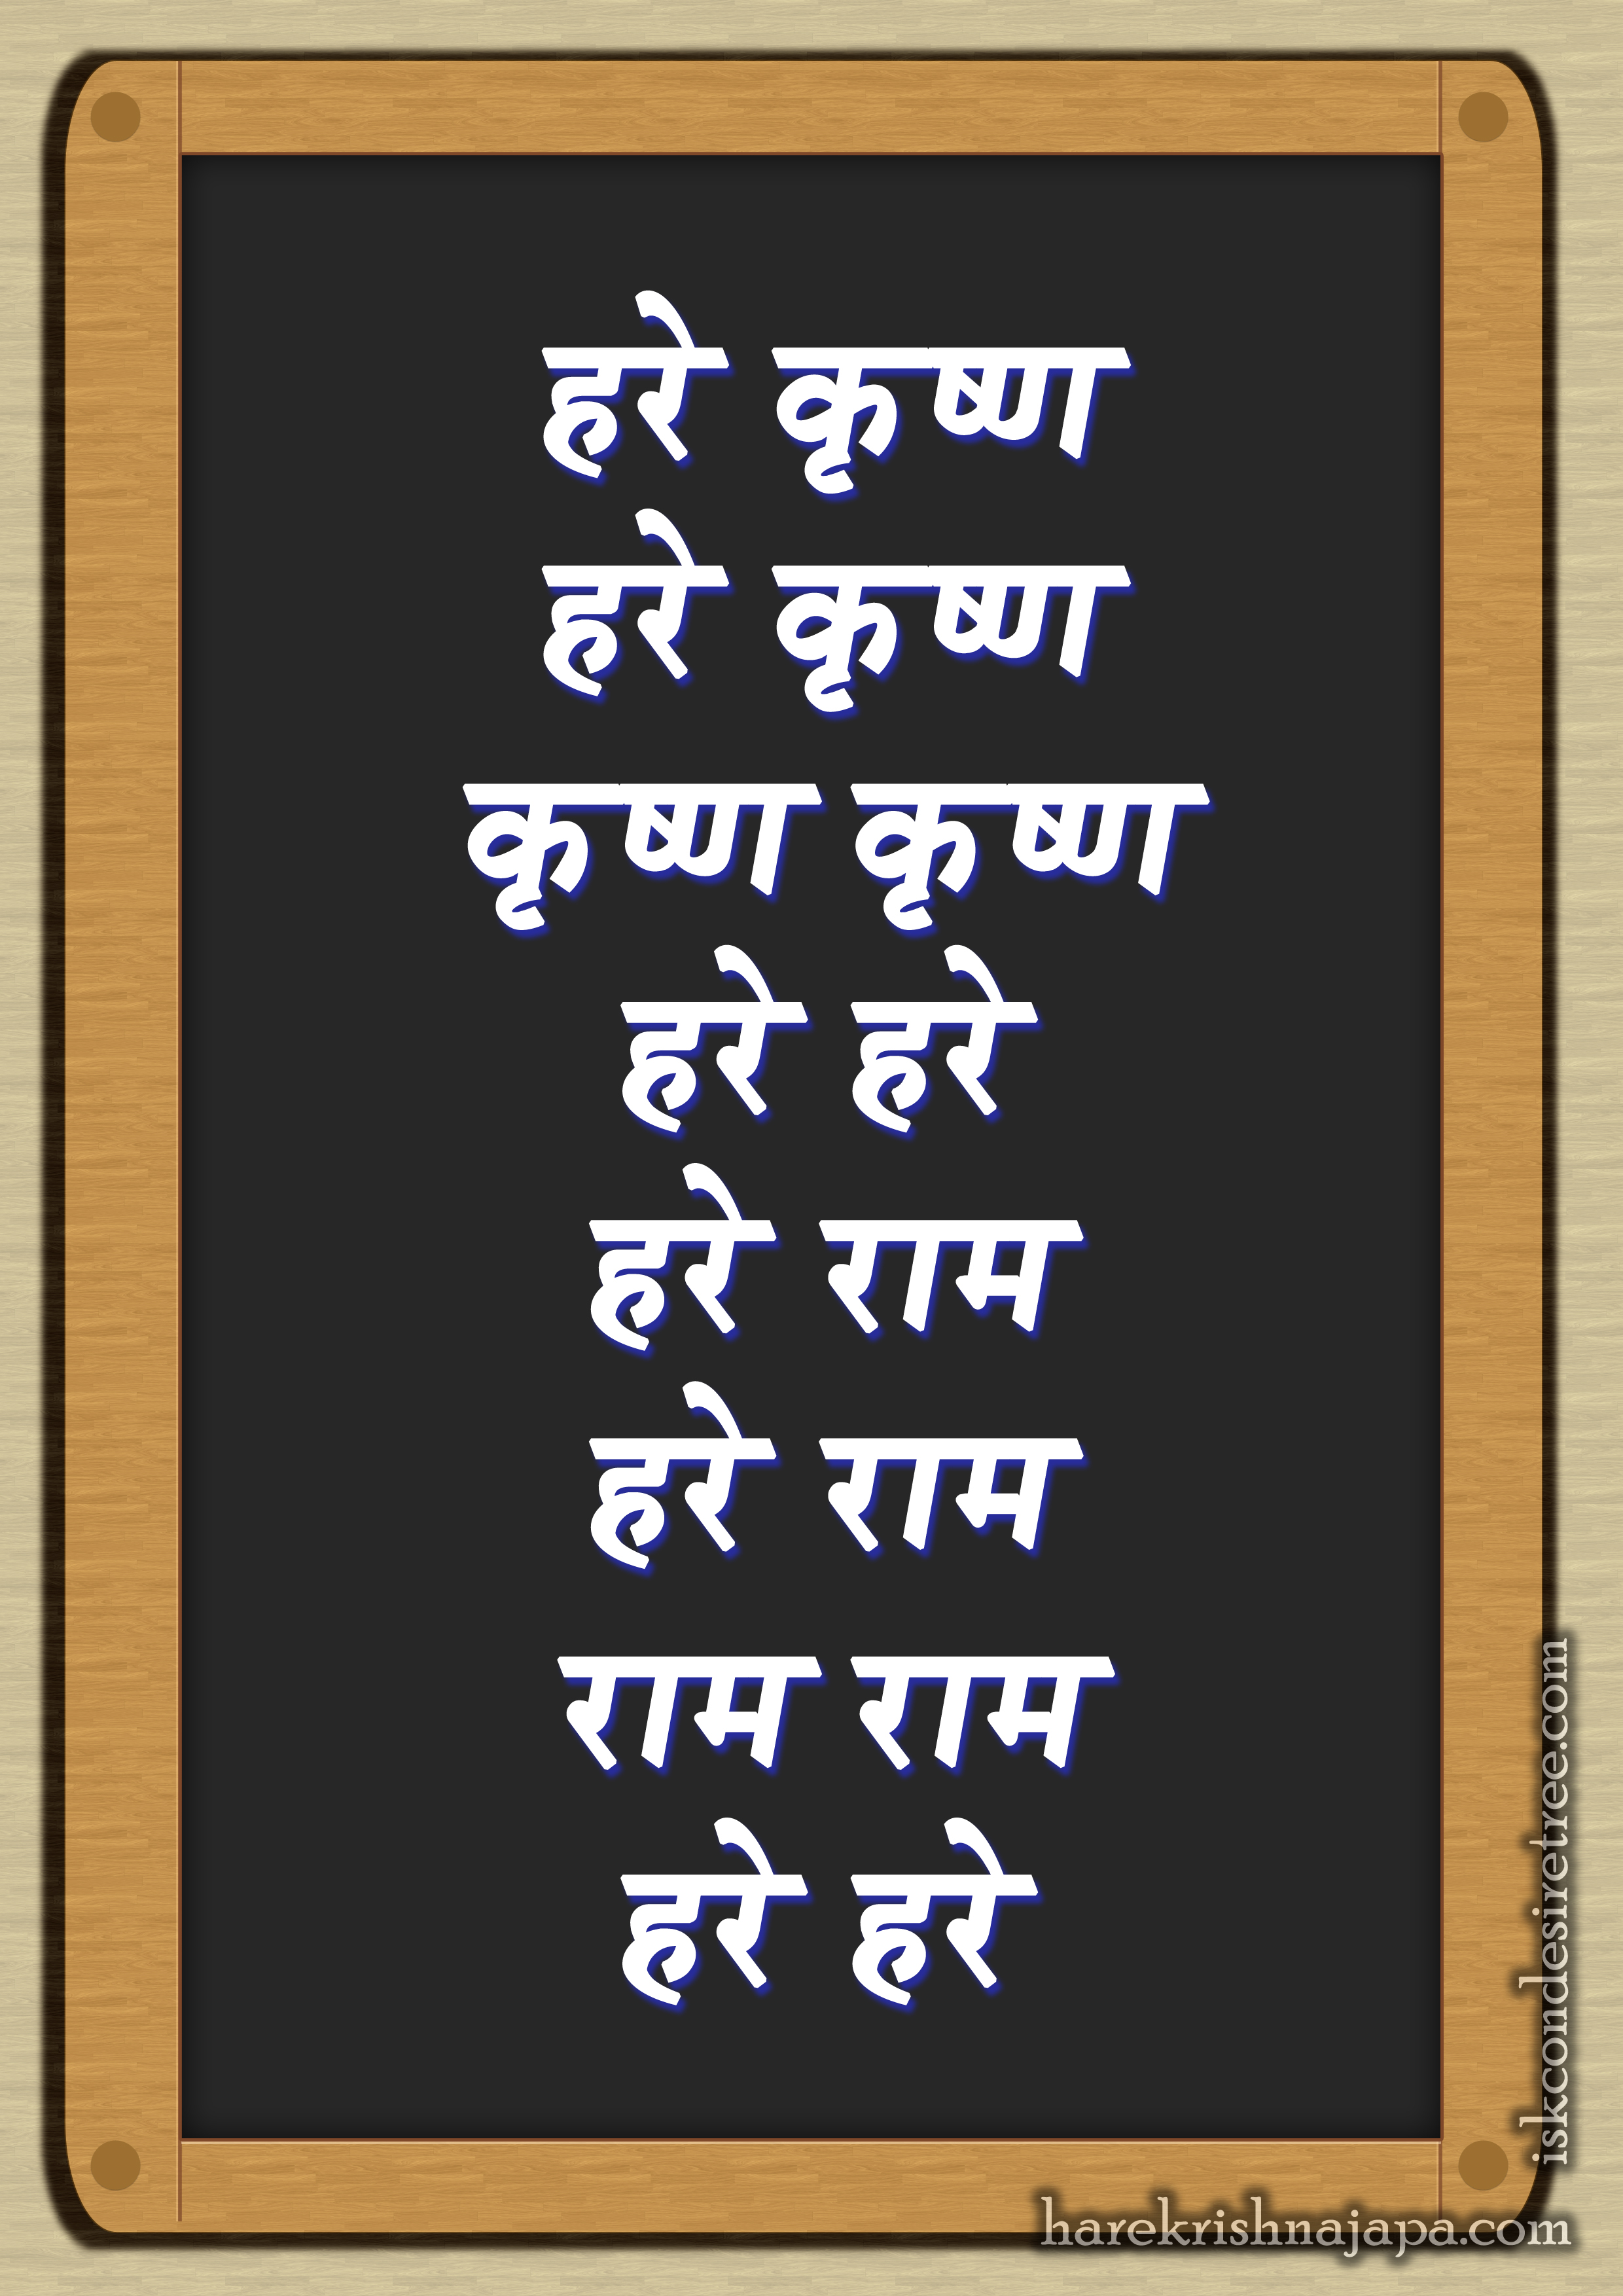 हरे कृष्ण
हरे कृष्ण
कृष्ण कृष्ण
हरे हरे
हरे राम
हरे राम
राम राम
हरे हरे
iskcondesiretree.com
harekrishnajapa.com